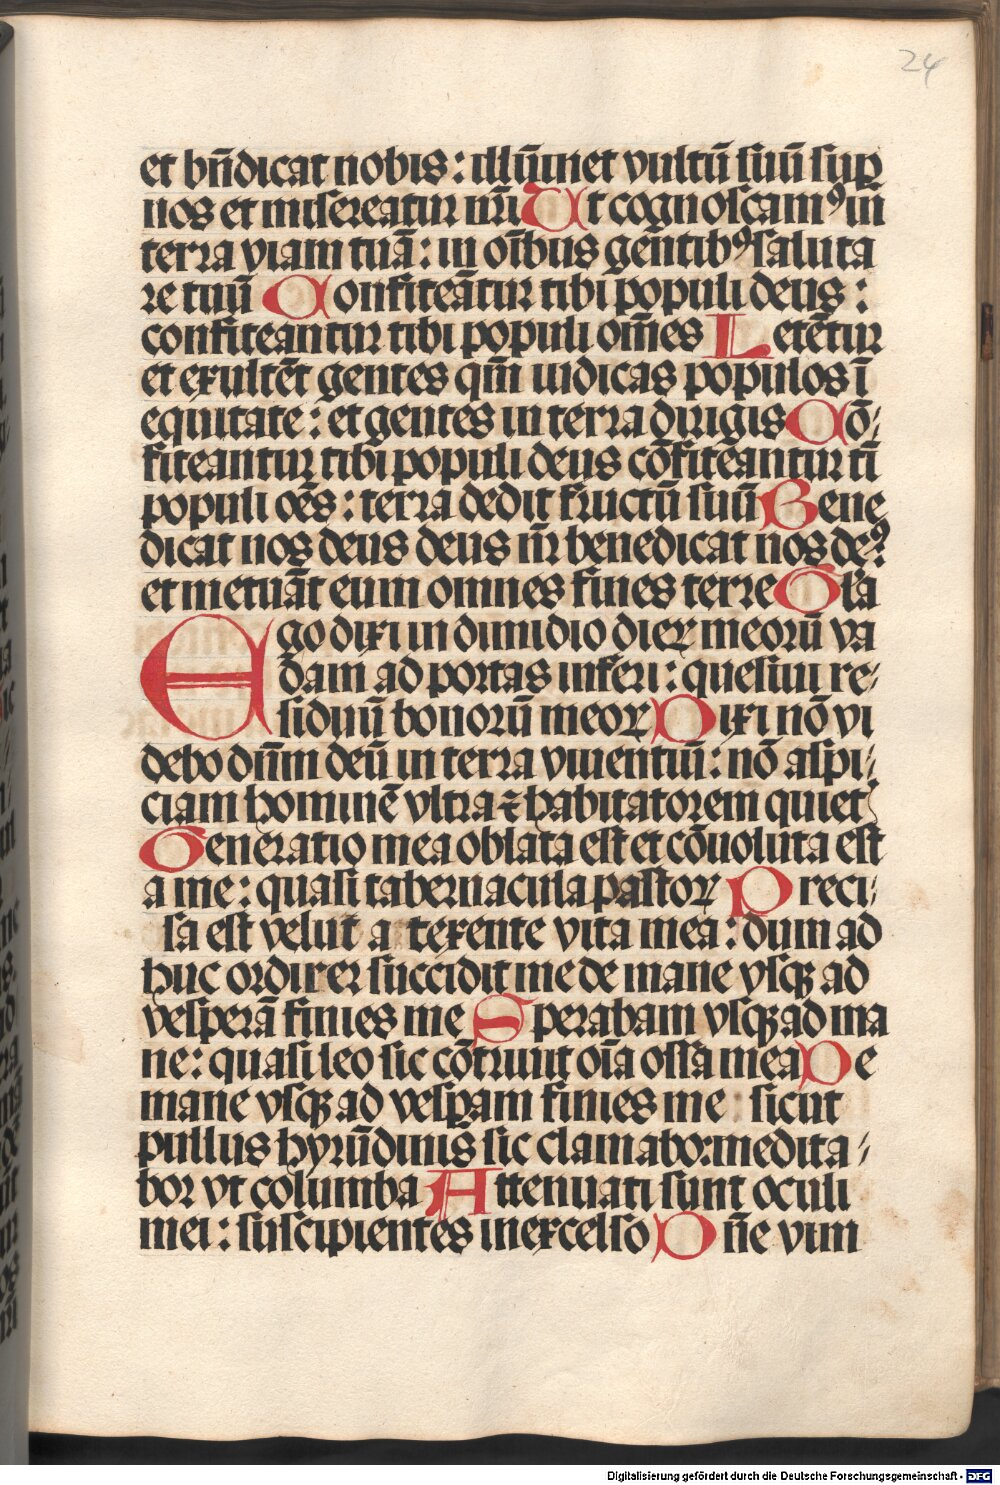 24
et bn̄dicat nobis: illūinet vultū suū sup
nos et misereatur nr̄i Ut cognoscamꝰ in̄
terra viam tuā: in oībus gētibꝰ saluta
re tuū Confiteātur tibi populi deus:
confiteantur tibi populi om̄es Letētur
et exultēt gentes qm̄ iudicas populos ī
equitate: et gentes in terra dirigis Cō-
fiteantur tibi populi deus cōfiteantur ti
populi oēs: terra dedit fructū suū Bene
dicat nos deus deus nr̄ benedicat nos deꝰ
et metuāt eum omnes fines terre Gl̄a
Ego dixi in dimidio dieꝝ meorū va
dam ad portas inferi: quesiui re-
siduū bonorū meoꝝ Dixi nō vi
debo dn̄m deū in terra viuentiū: nō aspi-
ciam hominē vltra ⁊ habitatorem quiet
Generatio mea oblata est et cōuoluta est
a me: quasi tabernacula pastoꝝ Preci-
sa est velut a texente vita mea: dum ad
huc ordirer succidit me de mane vsqꝫ ad
vesperā finies me Sperabam vsqꝫ ad ma
ne: quasi leo sic cōtriuit oīa ossa mea De
mane vsqꝫ ad vesꝑam finies me: sicut
pullus hyrūdinis sic clamabo: medita-
bor vt columba Attenuati sunt oculi
mei: suscipientes in excelso Dn̄e vim
Digitalisierung gefördert durch die Deutsche Forschungsgemeinschaft - DFG